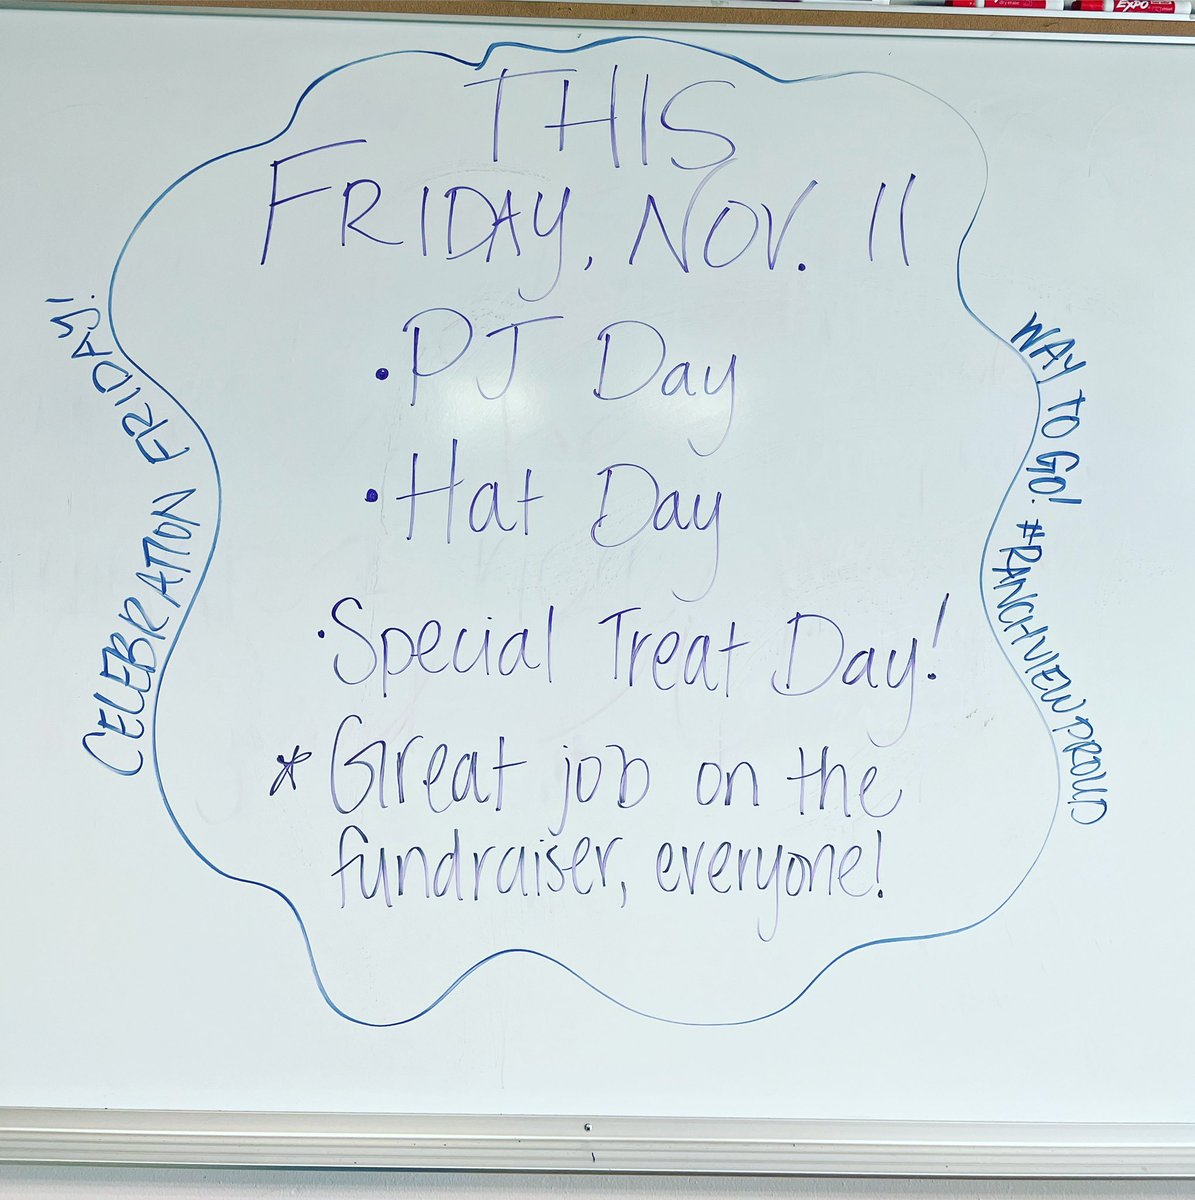 EXPO
THIS
FRIDAY, NOV. 11
• PJ Day
• Hat Day
• Special Treat Day!
* Great job on the
fundraiser, everyone!
CELEBRATION FRIDAY!
WAY TO GO! #RANCHVIEWPROUD